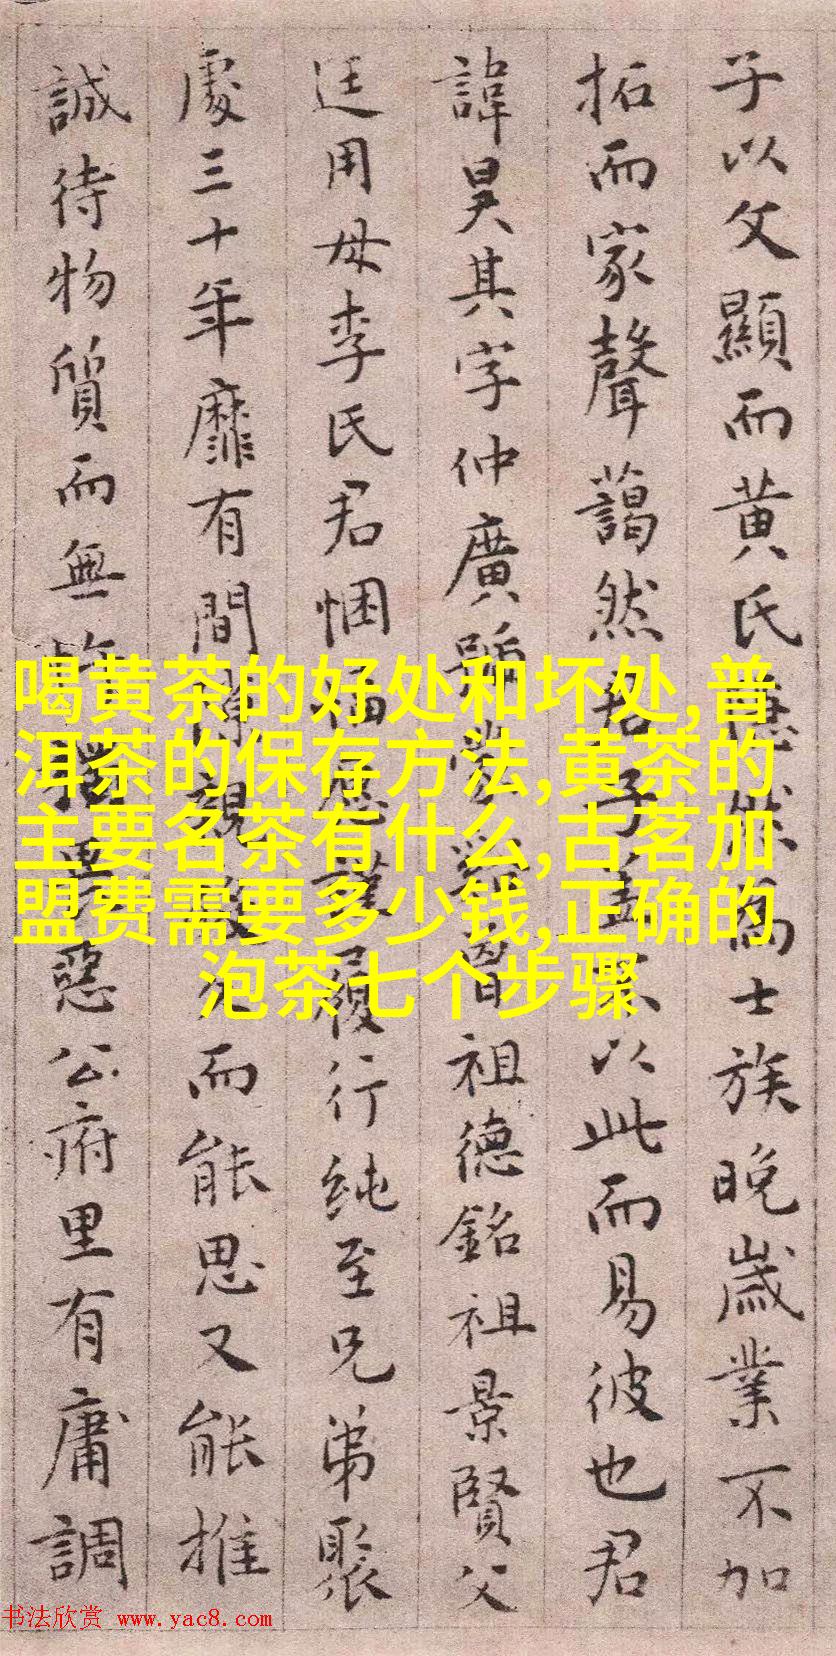 子以父顯而黄氏然爲士族晚歲業不加
拓而家聲藹然君子不以此而易彼也君
諱昊其字仲廣號祖德銘祖景賢父
廷用母李氏君悃履行纯至兄弟聚
處三十年靡有間親而能思又能推
誠待物質而無惡公府里有庸調
喝黄茶的好处和坏处,普
洱茶的保存方法,黄茶的
主要名茶有什么,古茗加
盟费需要多少钱,正确的
泡茶七个步骤
书法欣赏 www.yac8.com